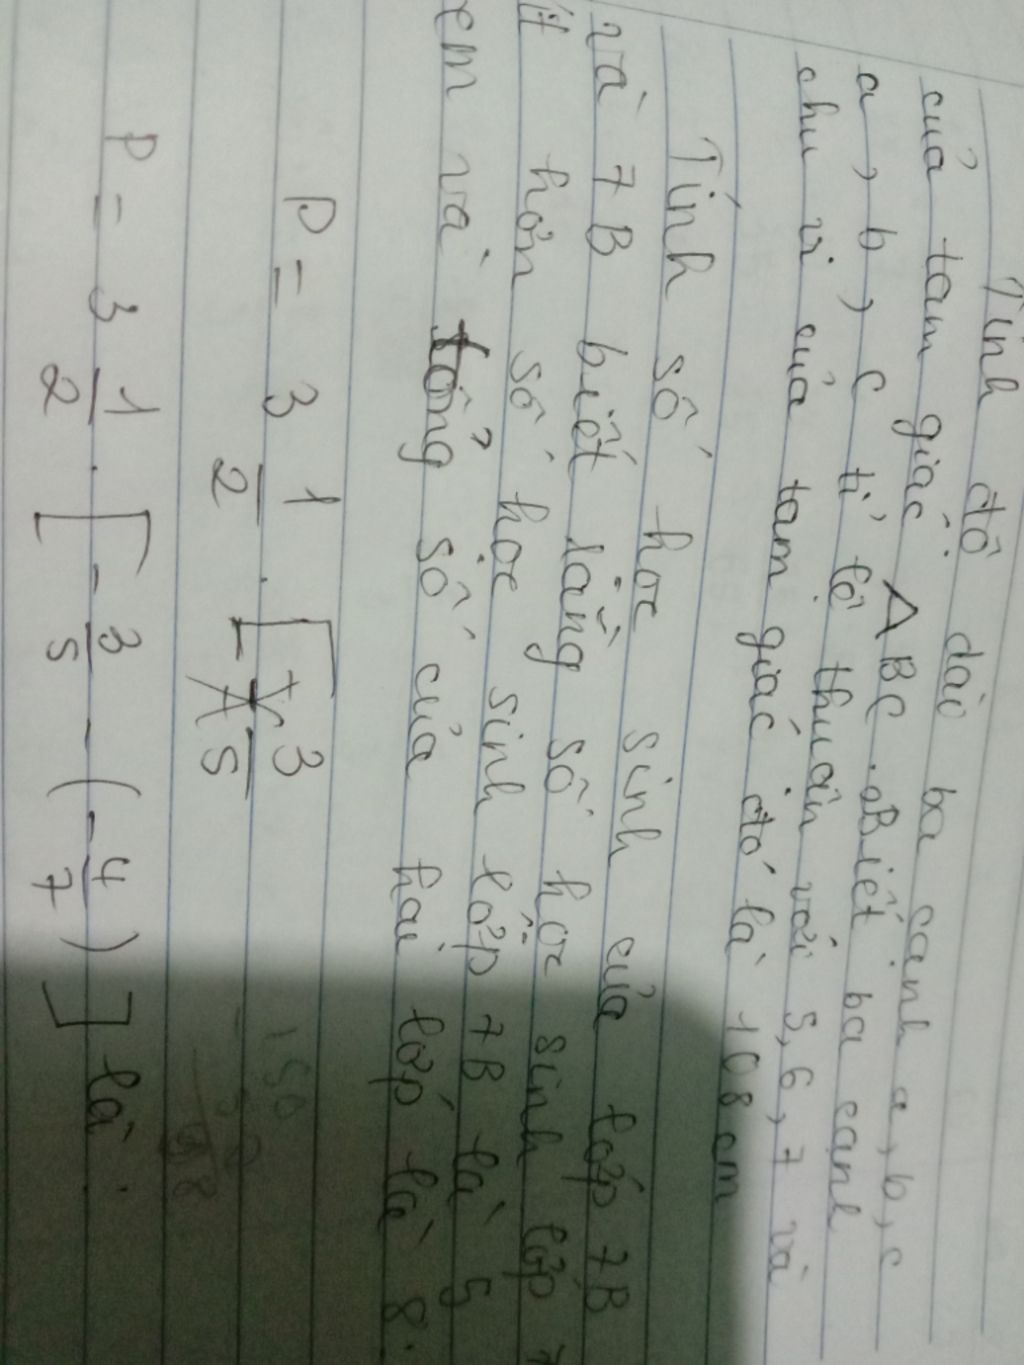 Tính độ dài ba cạnh a, b, c
của tam giác ABC. Biết ba cạnh
a, b, c tỉ lệ thuận với 5, 6, 7 và
chu vi của tam giác đó là 108 cm
Tính số học sinh của lớp 7B
và 7B biết rằng số học sinh lớp 7
ít hơn số học sinh lớp 7B là 5
em và tổng số của hai lớp là 8.
P = 3 1/2 . [ 3/5
P = 3 1/2 . [ - 3/5 - ( - 4/7 ) ] là :